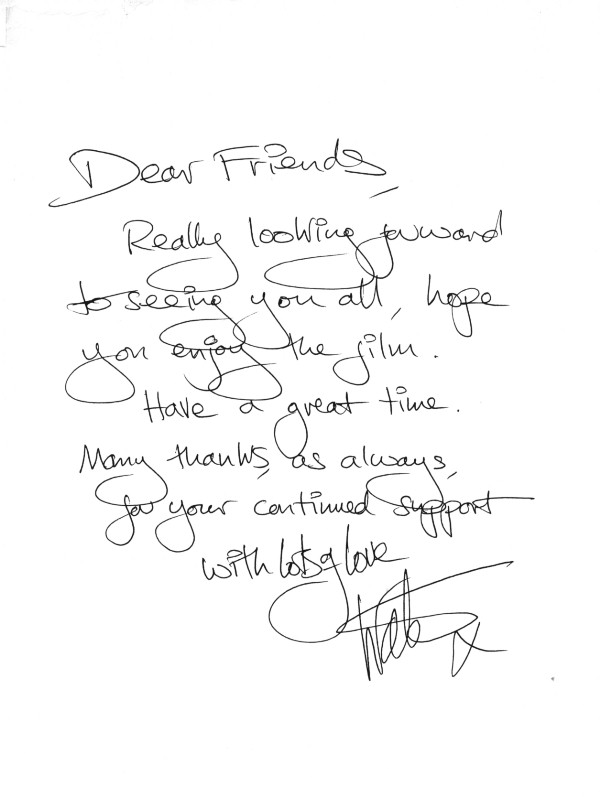 Dear Friends,
Really looking forward
to seeing you all, hope
you enjoy the film.
Have a great time.
Many thanks, as always,
for your continued support
with lots of love
Kate x